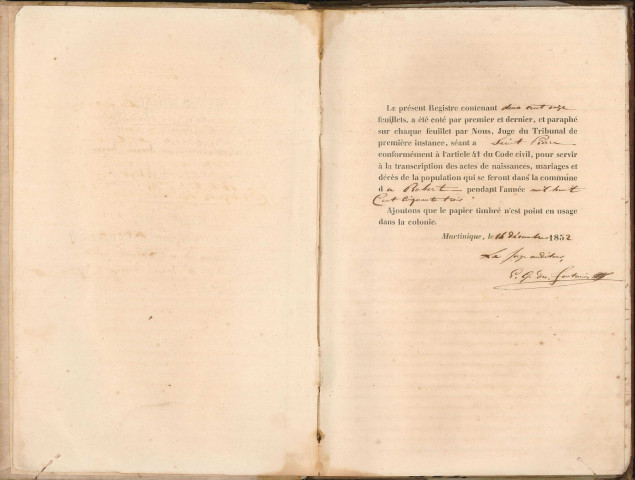 Le présent Registre contenant deux cent
feuillets, a été coté par premier et dernier, et paraphé
sur chaque feuillet par Nous, Juge du Tribunal de
première instance, séant a Saint Pierre
conformément à l'article 41 du Code civil, pour servir
à la transcription des actes de naissances, mariages et
décès de la population qui se feront dans la commune
d u Robert pendant l'année mil huit
Cent Cinquante trois
Ajoutons que le papier timbré n'est point en usage
dans la colonie.
Martinique, le 16 décembre 1852
Le juge auditeur,